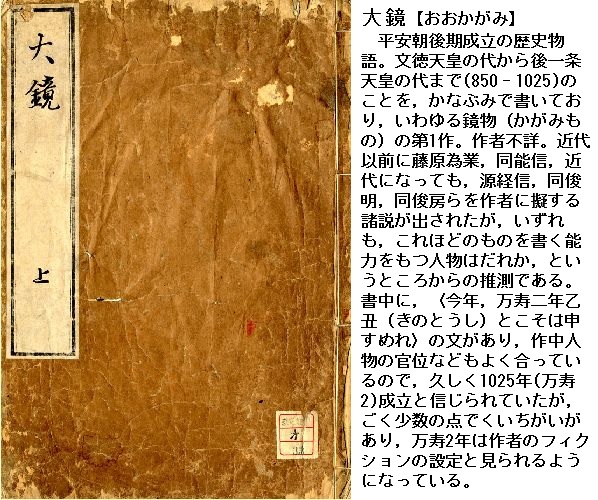 大鏡
上
大鏡【おおかがみ】
平安朝後期成立の歴史物
語。文徳天皇の代から後一条
天皇の代まで(850‐1025)の
ことを，かなぶみで書いてお
り，いわゆる鏡物（かがみも
の）の第1作。作者不詳。近代
以前に藤原為業，同能信，近
代になっても，源経信，同俊
明，同俊房らを作者に擬する
諸説が出されたが，いずれ
も，これほどのものを書く能
力をもつ人物はだれか，とい
うところからの推測である。
書中に，〈今年，万寿二年乙
丑（きのとうし）とこそは申
すめれ〉の文があり，作中人
物の官位などもよく合ってい
るので，久しく1025年(万寿
2)成立と信じられていたが，
ごく少数の点でくいちがいが
あり，万寿2年は作者のフィク
ションの設定と見られるよう
になっている。